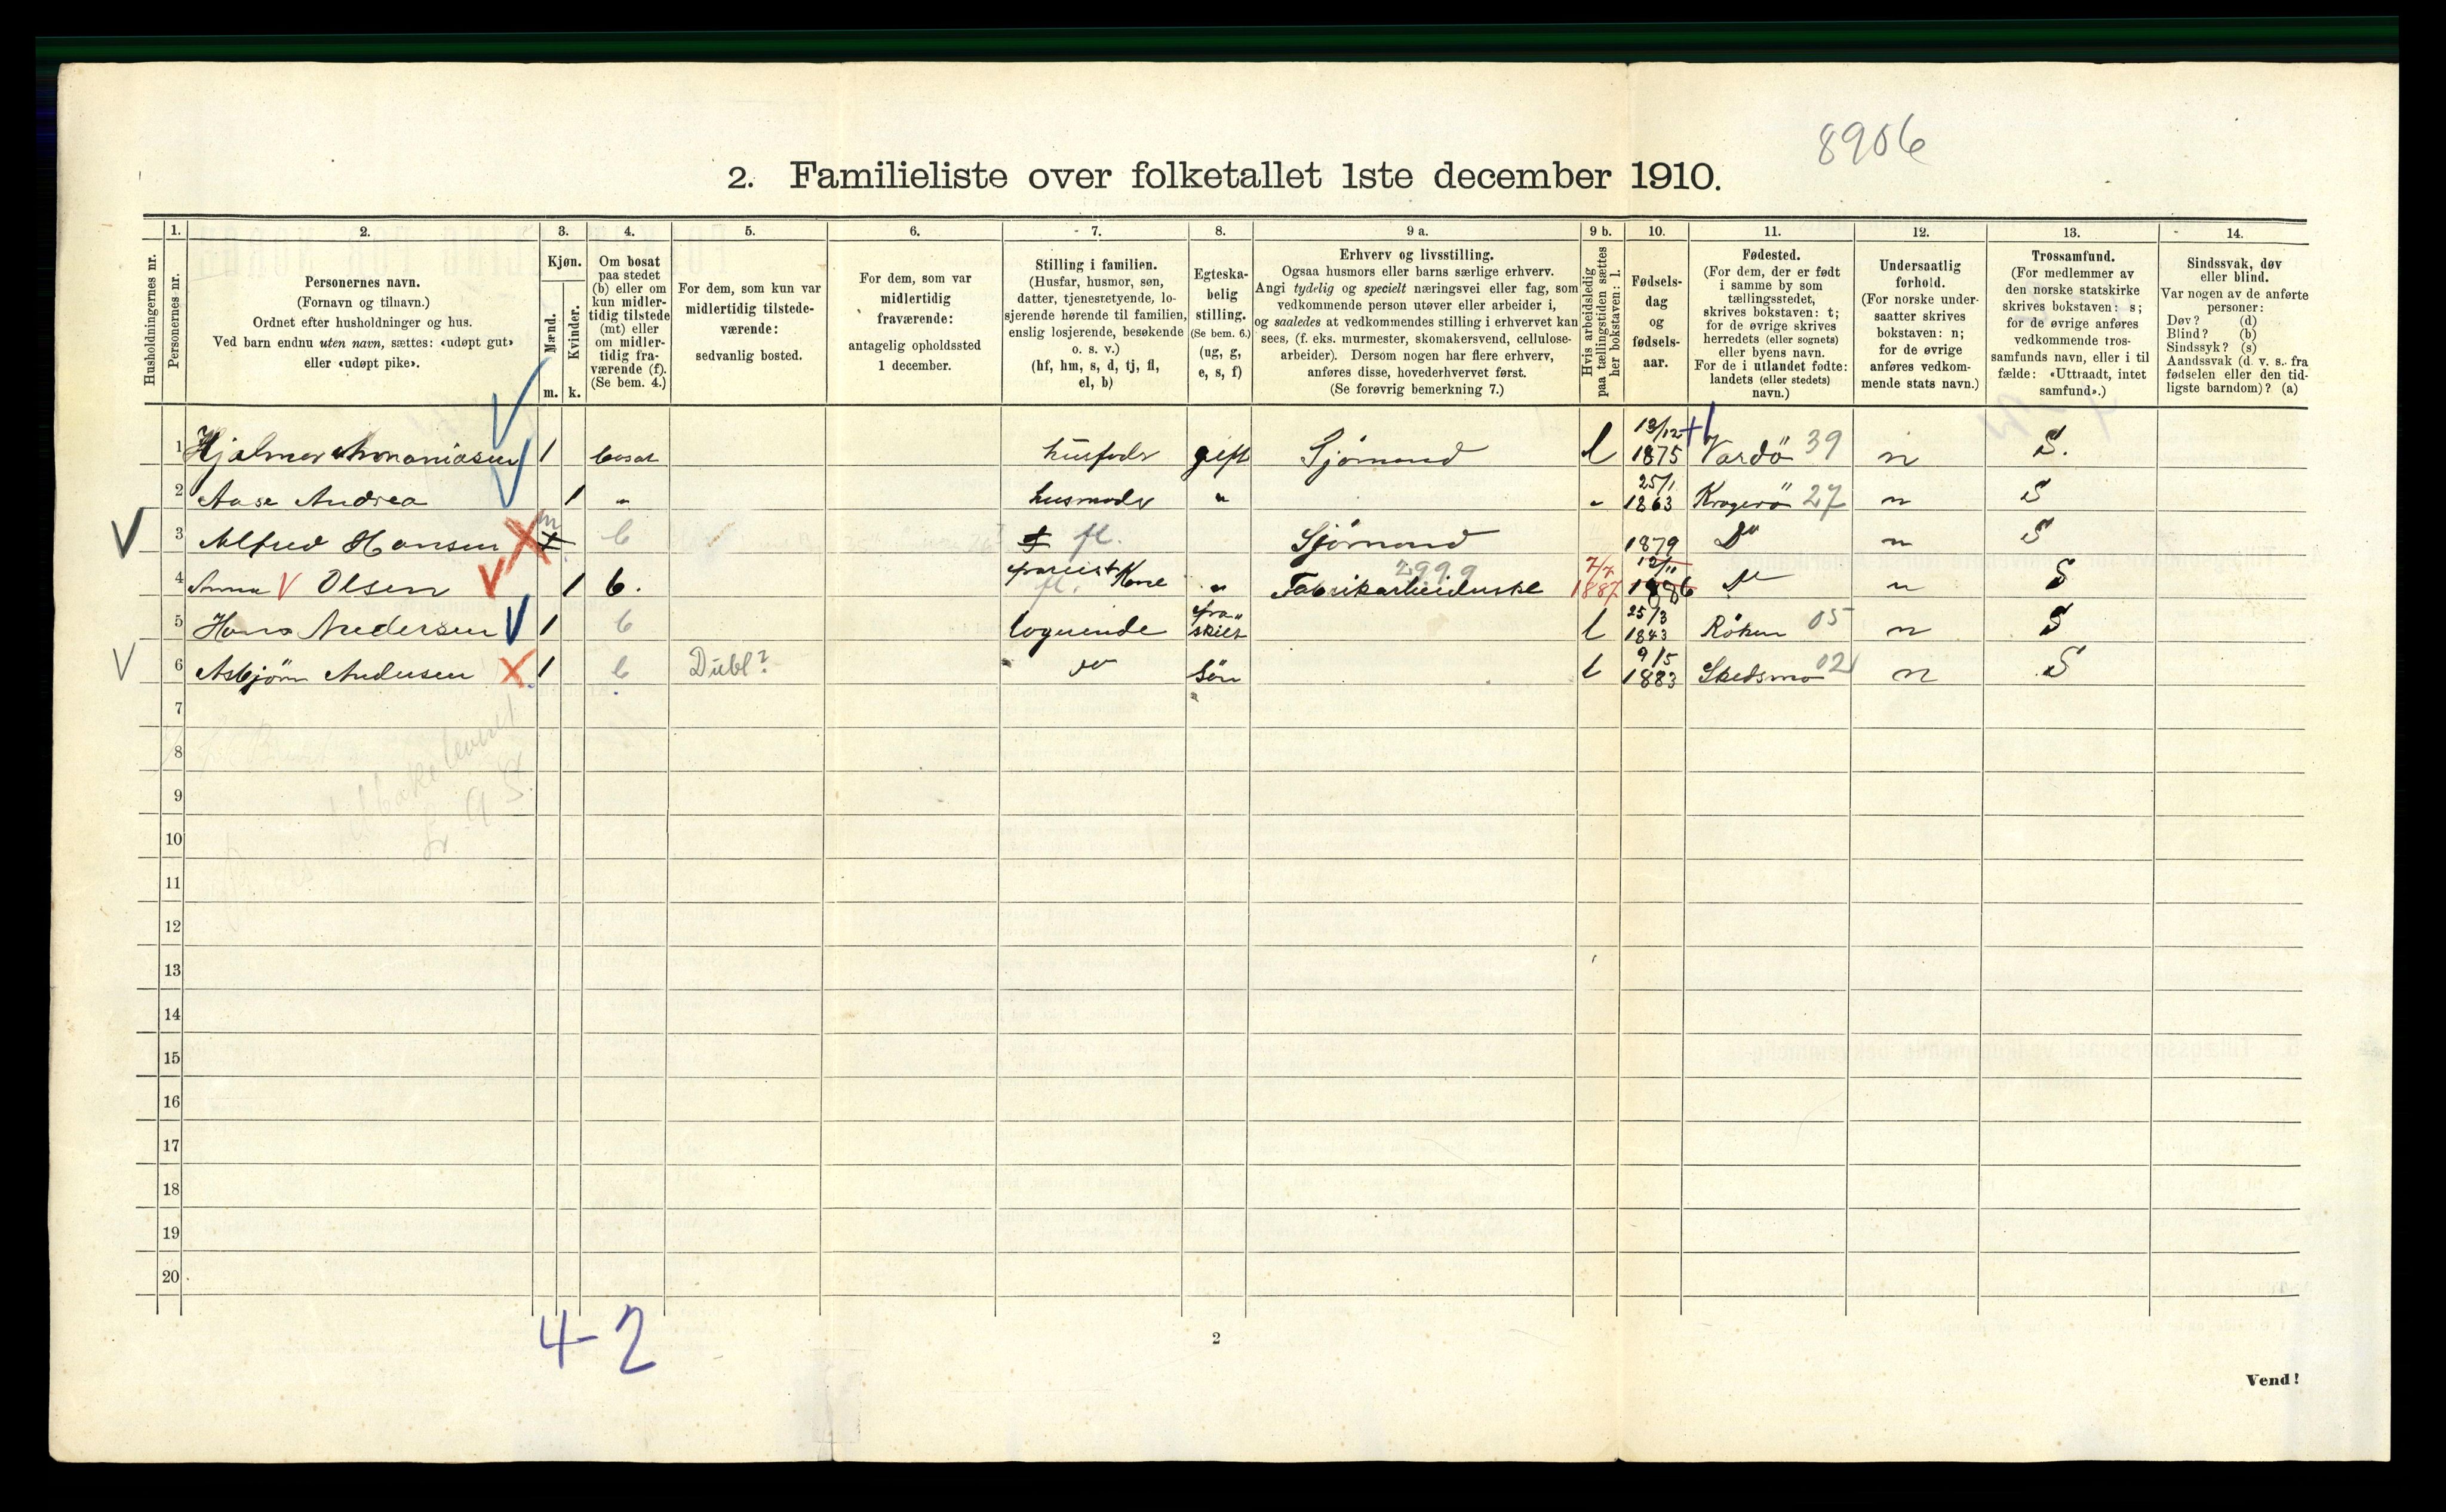 8906
2. Familieliste over folketallet 1ste december 1910.
Husholdningernes nr.
1.
Personernes nr.
2.
Personernes navn.
(Fornavn og tilnavn.)
Ordnet efter husholdninger og hus.
Ved barn endnu uten navn, sættes: «udøpt gut»
eller «udøpt pike».
3.
Kjøn.
Mænd.
Kvinder.
m. k.
4.
Om bosat
paa stedet
(b) eller om
kun midler-
tidig tilstede
(mt) eller
om midler-
tidig fra-
værende (f).
(Se bem. 4.)
5.
For dem, som kun var
midlertidig tilstede-
værende:
sedvanlig bosted.
6.
For dem, som var
midlertidig
fraværende:
antagelig opholdssted
1 december.
7.
Stilling i familien.
(Husfar, husmor, søn,
datter, tjenestetyende, lo-
sjerende hørende til familien,
enslig losjerende, besøkende
o. s. v.)
(hf, hm, s, d, tj, fl,
el, b)
8.
Egteska-
belig
stilling.
(Se bem. 6.)
(ug, g,
e, s, f)
9 a.
Erhverv og livsstilling.
Ogsaa husmors eller barns særlige erhverv.
Angi tydelig og specielt næringsvei eller fag, som
vedkommende person utøver eller arbeider i,
og saaledes at vedkommendes stilling i erhvervet kan
sees, (f. eks. murmester, skomakersvend, cellulose-
arbeider). Dersom nogen har flere erhverv,
anføres disse, hovederhvervet først.
(Se forøvrig bemerkning 7.)
9 b.
Hvis arbeidsledig
paa tællingstiden sættes
her bokstaven: l.
10.
Fødsels-
dag
og
fødsels-
aar.
11.
Fødested.
(For dem, der er født
i samme by som
tællingsstedet,
skrives bokstaven: t;
for de øvrige skrives
herredets (eller sognets)
eller byens navn.
For de i utlandet fødte:
landets (eller stedets)
navn.)
12.
Undersaatlig
forhold.
(For norske under-
saatter skrives
bokstaven: n;
for de øvrige
anføres vedkom-
mende stats navn.)
13.
Trossamfund.
(For medlemmer av
den norske statskirke
skrives bokstaven: s;
for de øvrige anføres
vedkommende tros-
samfunds navn, eller i til
fælde: «Uttraadt, intet
samfund».)
14.
Sindssvak, døv
eller blind.
Var nogen av de anførte
personer:
Døv? (d)
Blind? (b)
Sindssyk? (s)
Aandssvak (d. v. s. fra
fødselen eller den tid-
ligste barndom)? (a)
1 Hjalmar Ananiasen 1 bosat husfader gift Sjömand l 13/12 1875 Vardö 39 n S.
2 Aase Andrea 1 " husmoder " " 25/1 1863 Kragerö 27 n S
3 Alfred Hansen m b fl. Sjömand 1879 Do n S
4 Anna V Olsen 1 b. Kone fl. " Fabrikarbeiderske 2999 7/7 1887 12/11 1886 Do n S
5 Hans Andersen 1 b logerende fra skilt l 25/3 1843 Röken 05 n S
6 Asbjörn Andersen 1 b Dubl? Do Sön l 9/5 1883 Skedsmo 02 n S
7
8
9
10
11
12
13
14
15
16
17
18
19
20
4-2
2
Vend!